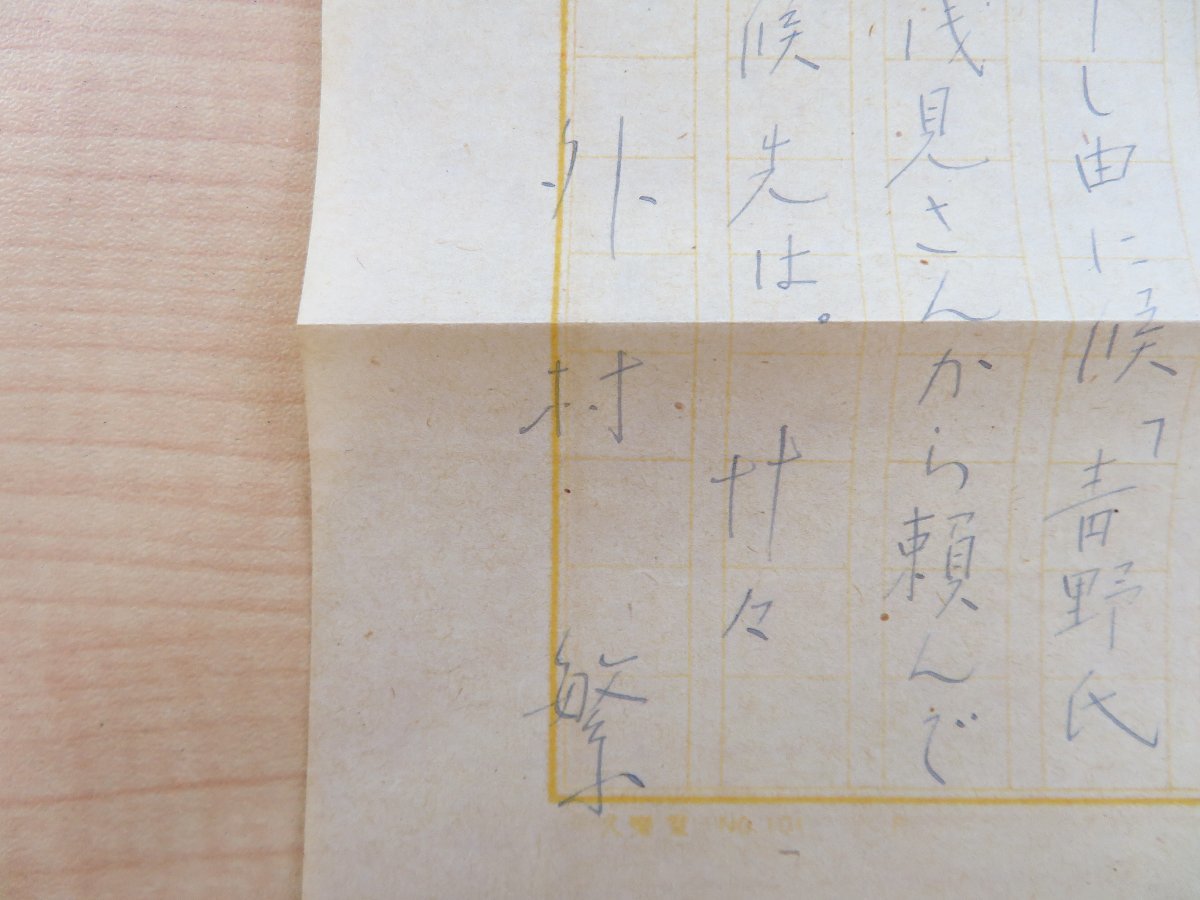 し由に候「青野氏
浅見さんから頼んで
候先は。 廾々
外村 繁
No. 101